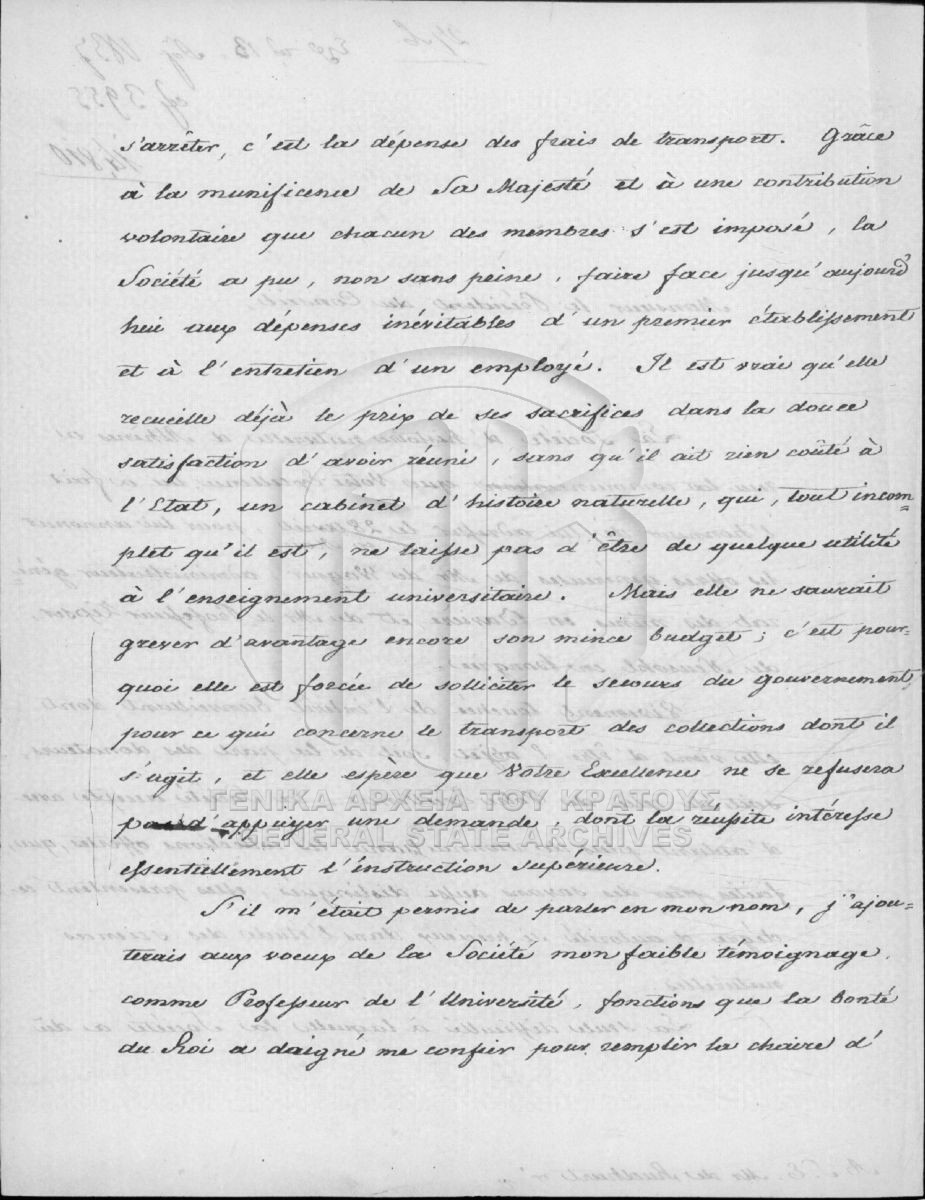 s'arrêter, c'est la dépense des frais de transport. Grâce
à la munificence de Sa Majesté et à une contribution
volontaire que chacun des membres s'est imposé, la
Société a pu, non sans peine, faire face jusqu'aujourd'
hui aux dépenses inévitables d'un premier établissement
et à l'entretien d'un employé. Il est vrai qu'elle
recueille déjà le prix de ses sacrifices dans la douce
satisfaction d'avoir réuni, sans qu'il ait rien coûté à
l'Etat, un cabinet d'histoire naturelle, qui, tout incom=
plet qu'il est, ne laisse pas d'être de quelque utilité
à l'enseignement universitaire. Mais elle ne saurait
grever d'avantage encore son mince budget; c'est pour-
quoi elle est forcée de solliciter le secours du gouvernement,
pour ce qui concerne le transport des collections dont il
s'agit, et elle espère que Votre Excellence ne se refusera
pas d'appuyer une demande, dont la réussite intéresse
essentiellement l'instruction supérieure.
S'il m'était permis de parler en mon nom, j'ajou=
terais aux voeux de la Société mon faible témoignage,
comme Professeur de l'Université, fonctions que la bonté
du Roi a daigné me confier pour remplir la chaire d'
ΓΕΝΙΚΑ ΑΡΧΕΙΑ ΤΟΥ ΚΡΑΤΟΥΣ
GENERAL STATE ARCHIVES